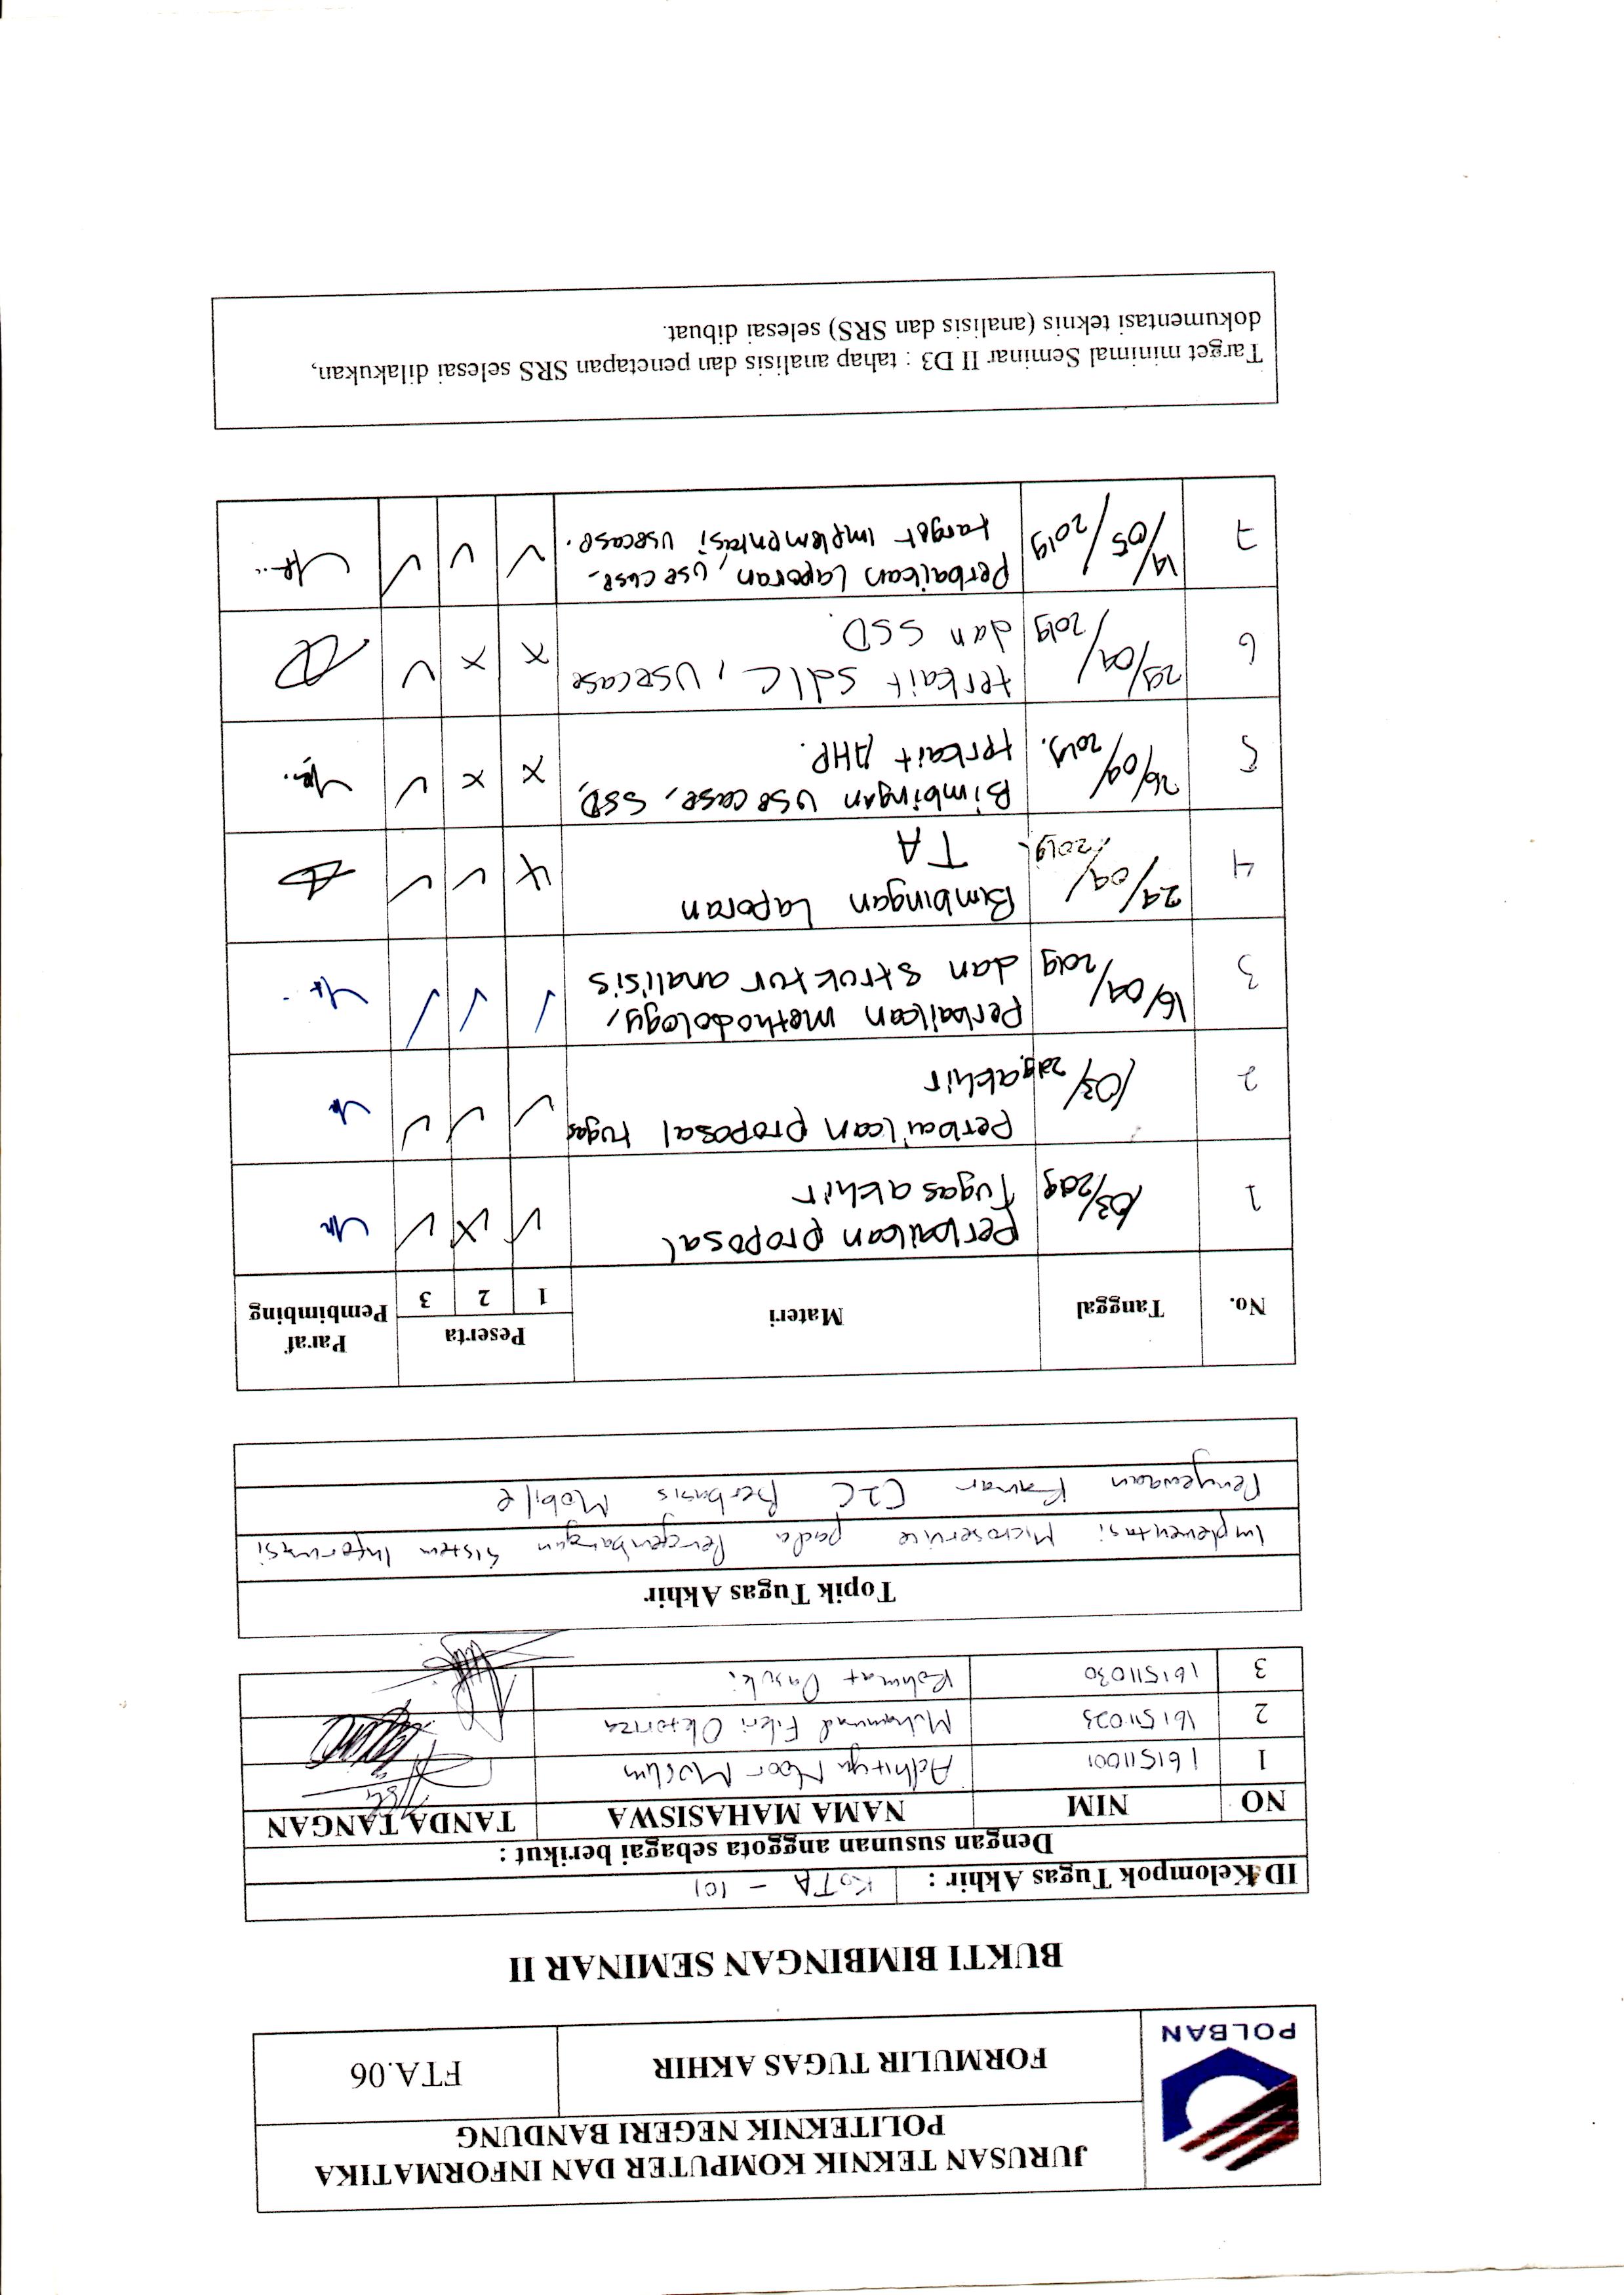 POLBAN
JURUSAN TEKNIK KOMPUTER DAN INFORMATIKA
POLITEKNIK NEGERI BANDUNG
FORMULIR TUGAS AKHIR
FTA.06
BUKTI BIMBINGAN SEMINAR II
ID Kelompok Tugas Akhir : KoTA - 101
Dengan susunan anggota sebagai berikut :
NO NIM NAMA MAHASISWA TANDA TANGAN
1 161511001 Adhitya Noor Muslim
2 161511023 Muhammad Fikri Oktoriza
3 161511030 Rohmat Dasuki
Topik Tugas Akhir
Implementasi Microservice pada Pengembangan Sistem Informasi
Penyewaan Kamar C2C Berbasis Mobile
No. Tanggal Materi Peserta Paraf Pembimbing
1 2 3
1 /03/2019 Perbaikan proposal
Tugas akhir
2 /03/2019 Perbaikan proposal tugas
akhir
3 16/04/2019 Perbaikan methodology,
dan struktur analisis
4 24/04/2019 Bimbingan Laporan
TA
5 26/04/2019. Bimbingan Usecase, SSD,
terkait AHP.
6 29/04/2019 terkait sdlc, Usecase
dan SSD.
7 14/05/2019 Perbaikan Laporan, use case.
target implementasi usecase.
Target minimal Seminar II D3 : tahap analisis dan penetapan SRS selesai dilakukan,
dokumentasi teknis (analisis dan SRS) selesai dibuat.